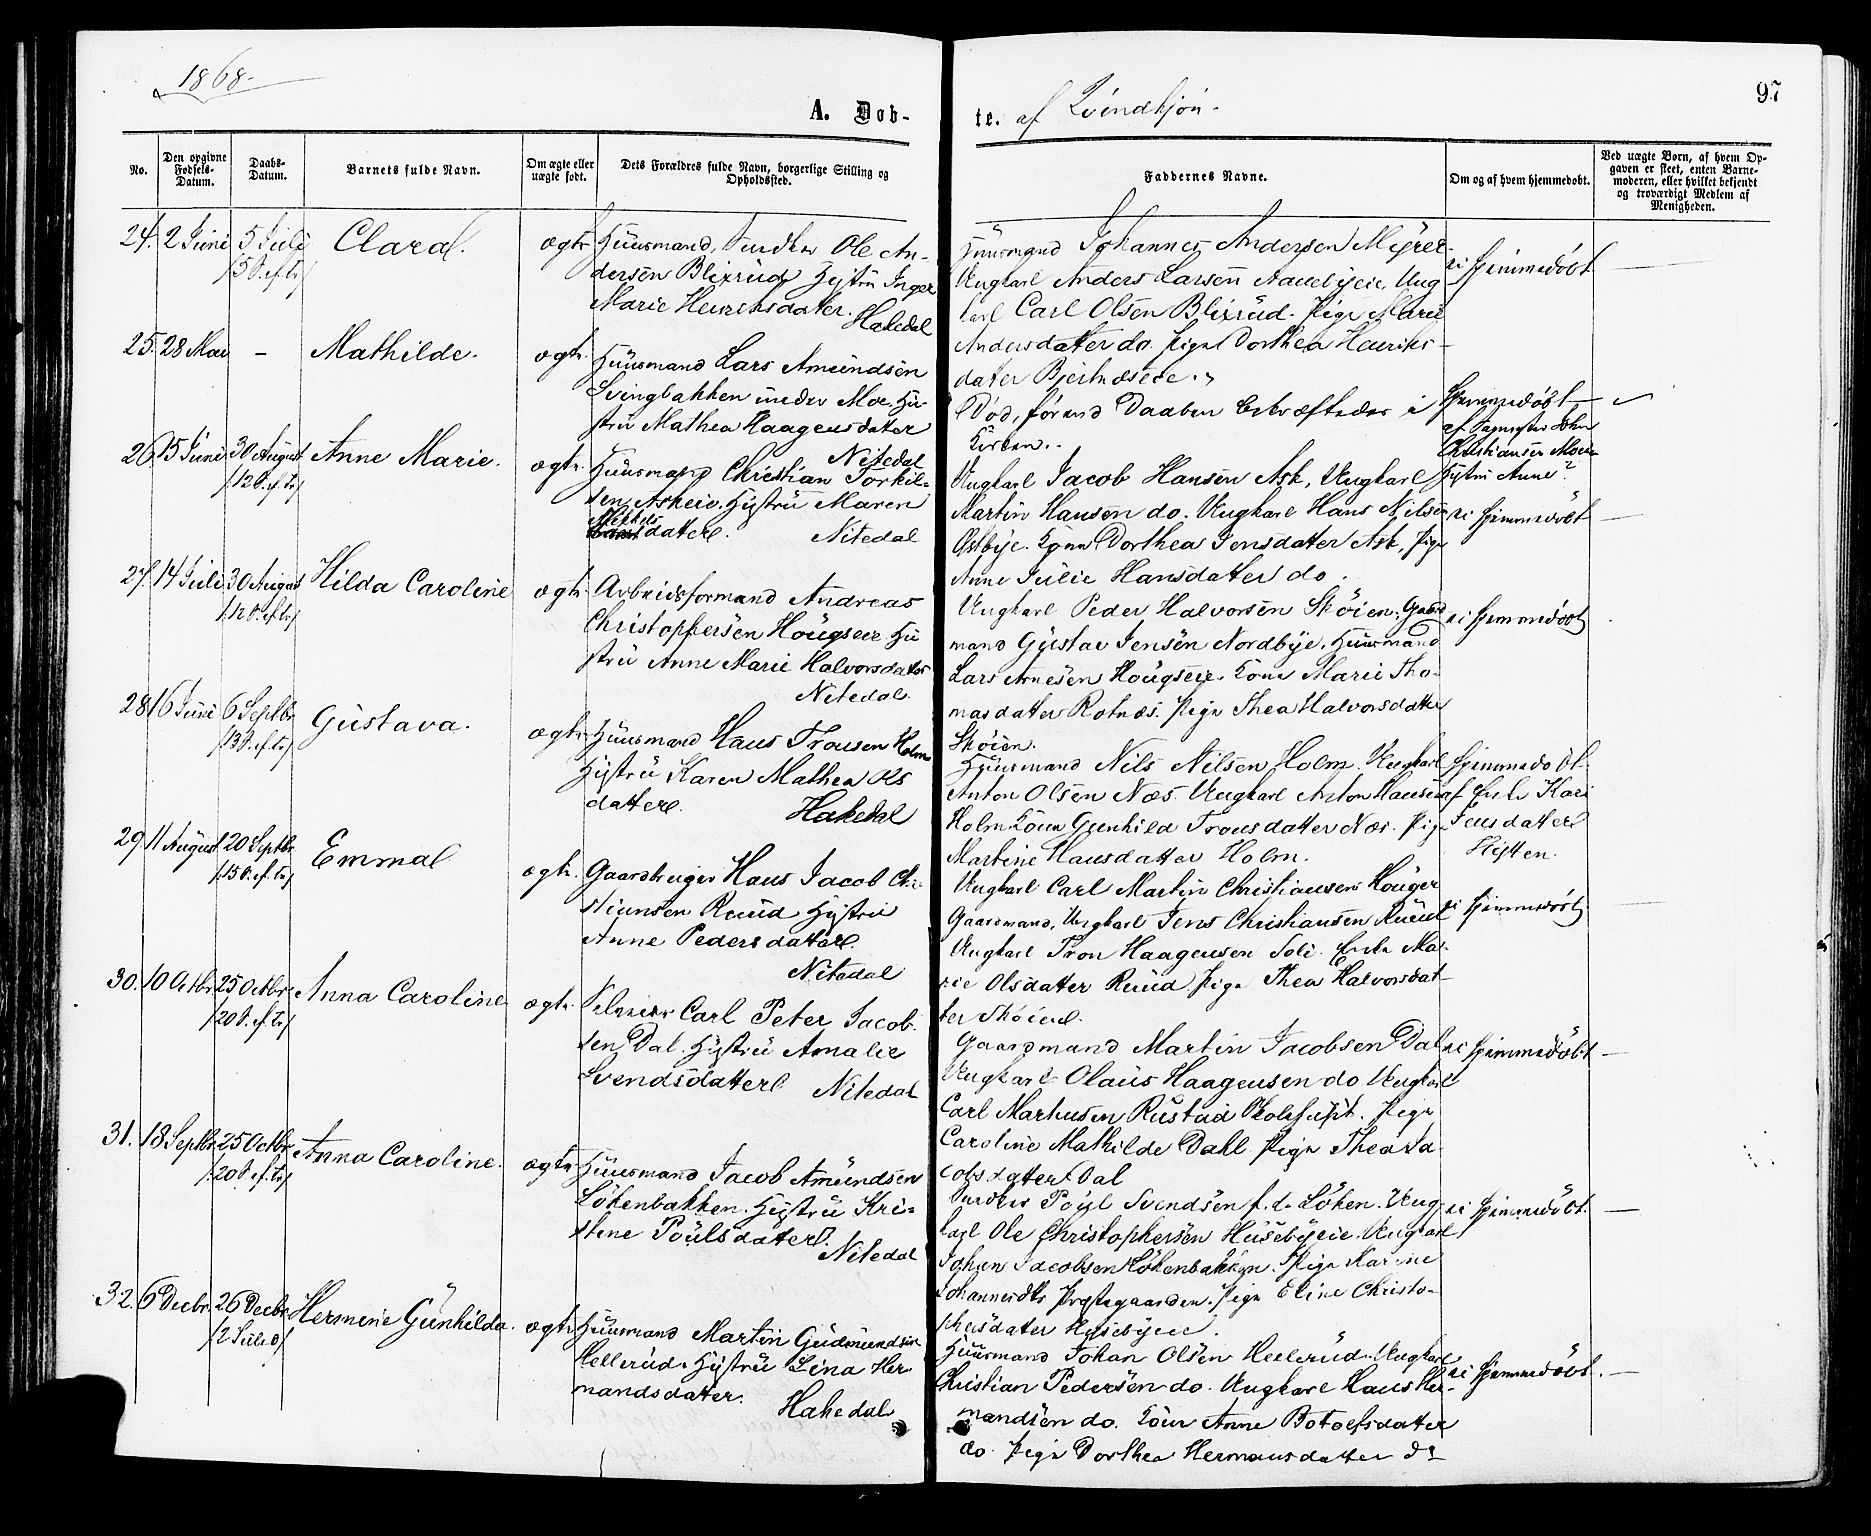 1868.
97
A. Døb-
te. af Qvindkjøn.
No.
Den opgivne Fødsels-Datum.
Daabs-Datum.
Barnets fulde Navn.
Om ægte eller uægte født.
Dets Forældres fulde Navn, borgerlige Stilling og Opholdssted.
Faddernes Navne.
Om og af hvem hjemmedøbt.
Ved uægte Børn, af hvem Op-
gaven er skeet, enten Barne-
moderen, eller hvilket bekjendt
og troværdigt Medlem af
Menigheden.
24. 2 Juni 5 Juli Clara. ægte
/5 S. ef. tr/
Huusmand, Ole An-
dersen Blixrud Hystru Inger
Marie Henriksdatter.
Hakedal
Huusmand Johannes Andersen Myrer
Ungkarl Anders Larsen Aaneby eie, Ung
karl Carl Olsen Blixrud. Pige Marie
Andersdatter do. Pige Dorthea Henriks-
dater
ei hjemmedøbt
25. 28 Mai - Mathilde. ægte
Huusmand Lars Amundsen
Svingbakken under Moe. Hu-
stru Mathea Haagensdater
Nitedal
Død, førend Daaben bekræftedes i
Kirken.
Hjemmedøbt
af John
Christiansen Moe
Hystru Anne?
26 15 Juni 30 August Anne Marie. ægte
/12 S. ef. tr/
Huusmand Christian Torkil-
sen Askeie. Hystru Maren
Mikkels
datter. Nitedal
Ungkarl Jacob Hansen Ask, Ungkarl
Martin Hansen do. Ungkarl Hans Nilsen
Østbye. Kone Dorthea Jensdatter Ask, Pige
Anne Julie Hansdatter do.
ei hjemmedøbt
27. 14 Juli 30 August Hilda Caroline ægte
/12 S. ef. tr/
Arbeidsformand Andreas
Christophersen Hougseie Hu
stru Anne Marie Halvorsdatter
Nitedal
Ungkarl Peder Halvorsen Skøien. Gaard
mand Gustav Jensen Nordbye. Huusmand
Lars Arnesen Hougseie. Kone Marie Tho-
masdatter Rotnæs. Pige Thea Halvorsdatter
Skøien.
ei hjemmedøbt
28 16 Juni 6 Septbr Gustava. ægte
/13 S. ef. tr/
Huusmand Hans Tronsen Holm
Hystru Karen Mathea Ols
datter.
Hakedal
Huusmand Nils Nilsen Holm. Ungkarl
Anton Olsen Næs. Ungkarl Anton Hansen
Holm. Kone Gunhild Tronsdatter Næs. Pige
Martine Hansdatter Holm.
hjemmedøbt
af Enke Kari
Jensdatter
29 11 August 20 Septbr Emma ægte.
/15 S. ef. tr/
Gaardbruger Hans Jacob Chri-
stiansen Ruud Hystru
Anne Pedersdatter.
Nitedal
Ungkarl Carl Martin Christiansen Houger
Gaardmand, Ungkarl Jens Christiansen Ruud
Ungkarl Tron Haagensen Soli. Enke Ma-
rie Olsdatter Ruud Pige Thea Halvorsdat-
ter Skøien.
ei hjemmedøbt
30. 10 Octbr 25 Octbr Anna Caroline ægte
/20 S. ef. tr/
Selveier Carl Peter Jacob-
sen Dal. Hystru Amalie
Svendsdatter Nitedal
Gaardmand Martin Jacobsen Dal
Ungkarl Olaus Haagensen do Ungkarl
Carl Markusen Rustad Pige
Caroline Mathilde Dahl Pige Thea Ja-
cobsdatter Dal
ei hjemmedøbt
31. 18 Septbr 25 Octbr Anna Caroline. ægte
/20 S. ef. tr/
Huusmand Jacob Amundsen
Løkenbakken. Hystru Kri-
stine Poulsdatter.
Nitedal
Poul Svendsen Løken. Ung-
karl Ole Christophersen Husebyeie. Ungkarl
Johan Jacobsen Løkenbakken. Pige Karine
Johannesdtr Præstegaarden. Pige Eline Christo-
phersdater Husebyeie.
ei hjemmedøbt.
32. 6 Decbr 26 Decbr Hermine Gunhilda. ægte
/2 Juled/
Huusmand Martin Gudmundsen
Hellerud. Hystru Lina Her
mandsdatter.
Hakedal
Huusmand Johan Olsen Hellerud. Ungkarl
Christian Pedersen do. Ungkarl Hans Her-
mandsen do. Kone Anne Botolfsdatter
do. Pige Dorthea Hermansdatter do
ei hjemmedøbt.